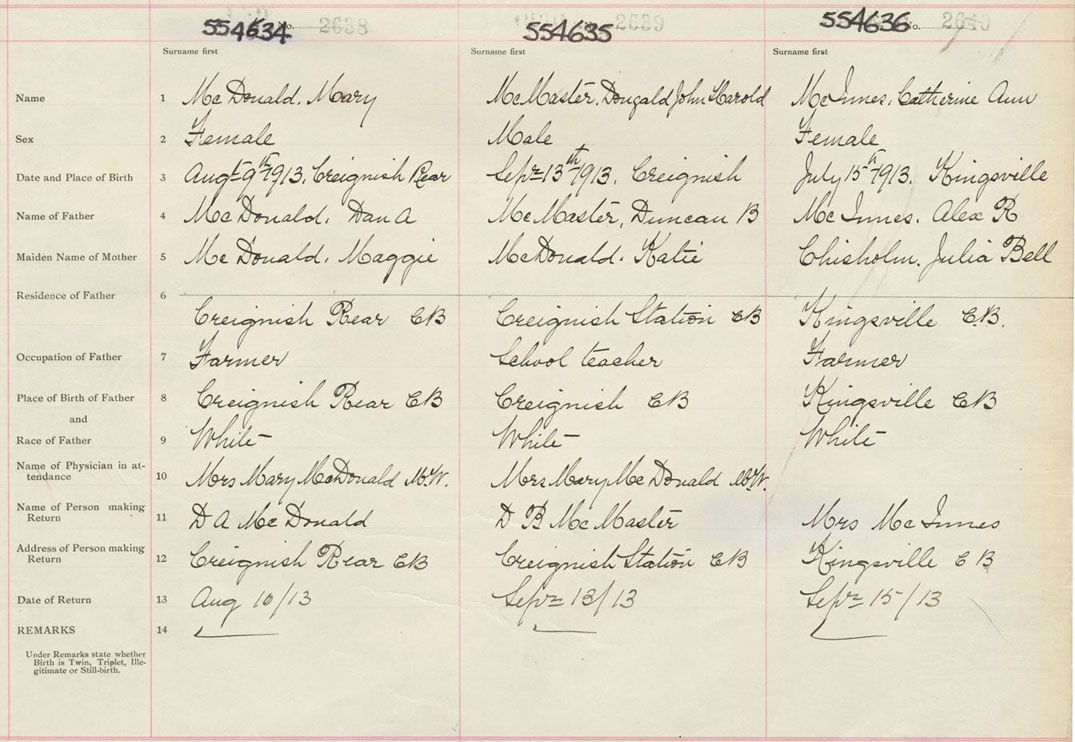 554634 No. 2638 554635 2639 554636 No. 2640
Surname first Surname first Surname first
Name 1 McDonald, Mary McMaster, Dougald John Harold McInnes, Catherine Ann
Sex 2 Female Male Female
Date and Place of Birth 3 Augt 9th 1913, Creignish Rear Sepr 13th 1913, Creignish July 15th 1913, Kingsville
Name of Father 4 McDonald, Dan A McMaster, Duncan B McInnes, Alex R
Maiden Name of Mother 5 McDonald, Maggie McDonald, Katie Chisholm, Julia Bell
Residence of Father 6
Creignish Rear CB Creignish Station CB Kingsville C.B.
Occupation of Father 7 Farmer School teacher Farmer
Place of Birth of Father 8 Creignish Rear CB Creignish CB Kingsville CB
and
Race of Father 9 White White White
Name of Physician in at-
tendance 10 Mrs Mary McDonald M.W. Mrs Mary McDonald M.W.
Name of Person making
Return 11 D A McDonald D B McMaster Mrs McInnes
Address of Person making
Return 12 Creignish Rear CB Creignish Station CB Kingsville C B
Date of Return 13 Aug 10/13 Sepr 13/13 Sepr 15/13
REMARKS 14
Under Remarks state whether
Birth is Twin, Triplet, Ille-
gitimate or Still-birth.